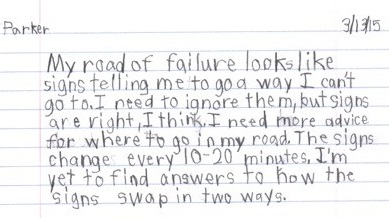 Parker 3/13/15
My road of failure looks like
signs telling me to go a way I can't
go to. I need to ignore them, but signs
are right, I think. I need more advice
for where to go in my road. The signs
change every 10-20 minutes. I'm
yet to find answers to how the
signs swap in two ways.